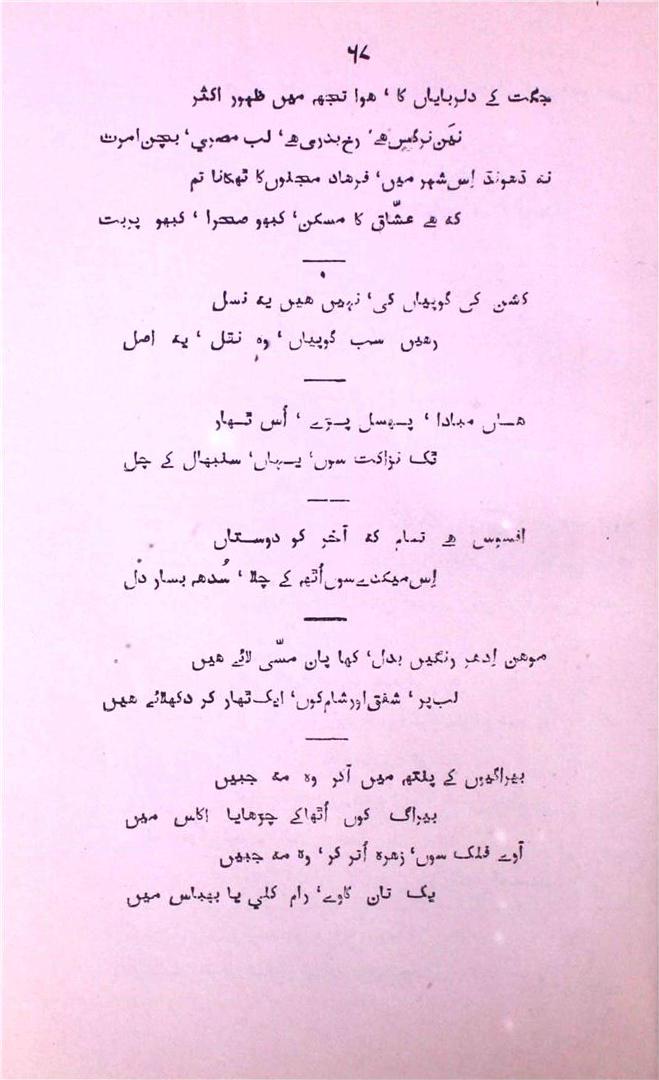 ۶۸
جگت کے دلربایاں کا ، ھوا تجھہ میں ظہور اکثر
نَین نرگس ھے ، رخ بدری ھے ، لب مصری ، بچن امرت
نہ ڈھونڈ اِس شہر میں ، فرھاد مجنوں کا ٹھکانا تم
کہ ھے عشّاق کا مسکن ، کبھو صحرا ، کبھو پربت
کشن کی گوپیاں کی ، نہیں ھیں یہ نسل
رھیں سب گوپیاں ، وہ نقل ، یہ اصل
ھاں مبادا ، پھسل پڑے ، اُس ٹھار
ٹک نزاکت سوں ، یہاں ، سنبھال کے چل
افسوس ھے تمام کہ آخر کو دوستاں
اِس میکدے سوں اُٹھہ کے چلا ، سُدھہ بسار دل
موھن اِدھر رنگیں بدل ، کھا پان مسّی لائے ھیں
لب پر ، شفق اور شام کوں ، ایک ٹھار کر دکھلائے ھیں
بیراگیوں کے پنتھہ میں آکر وہ مہ جبیں
بیراگ کوں اُٹھاکے چڑھایا اکاس میں
آوے فلک سوں ، زھرہ اُتر کر ، وہ مہ جبیں
یک تان گاوے ، رام کلی یا بھباس میں